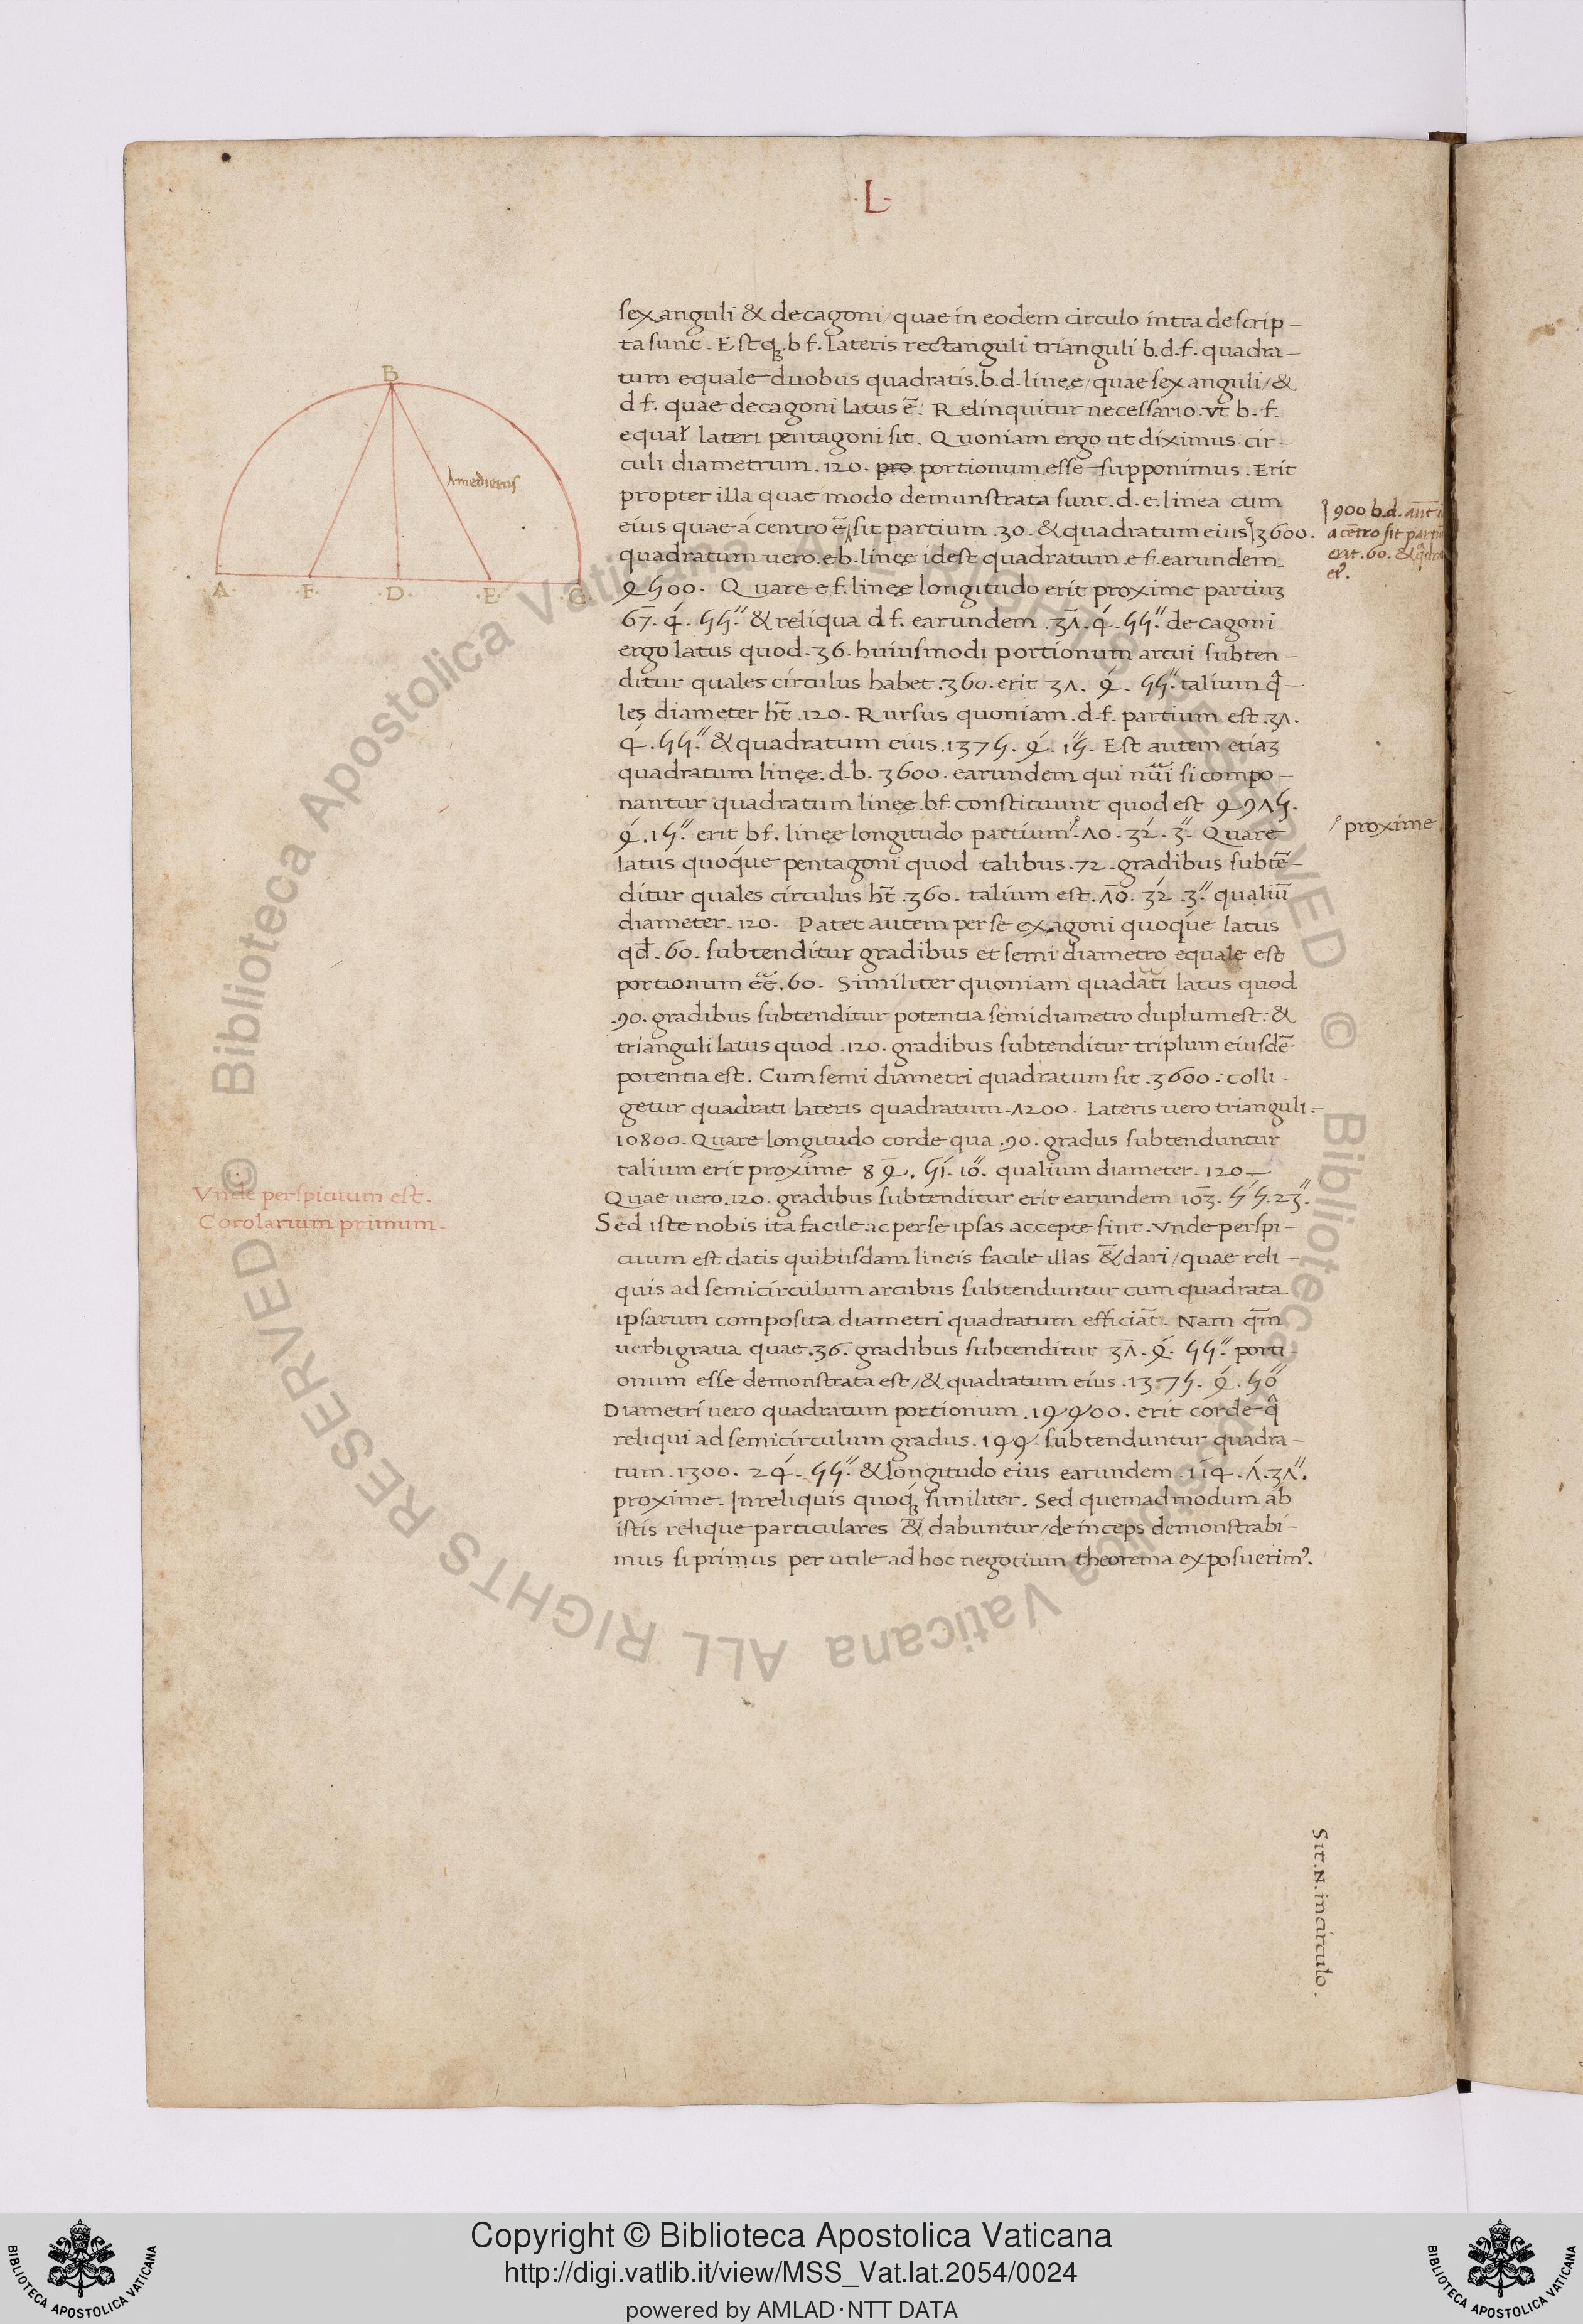 ·L·
sexanguli & decagoni/quae in eodem circulo intra descrip-
ta sunt. Estqꝫ.b f. lateris rectanguli trianguli b.d.f. quadra-
tum equale duobus quadratis.b.d.linęe/quae sexanguli/&
d f. quae decagoni latus ē. Relinquitur necessario vt b.f.
equał lateri pentagoni sit. Quoniam ergo ut diximus cir-
culi diametrum.120. pro portionum esse supponimus. Erit
propter illa quae modo demunstrata sunt.d.e.linea cum
eius quae á centro ē sit partium.30. & quadratum eius 3600.
quadratum uero.e b.linęe idest quadratum e f. earundem
4500. Quare e f. linęe longitudo erit proxime partiuꝫ
67. 4. 55.'' & reliqua d f. earundem .37. 4. 55.'' decagoni
ergo latus quod.36.huiusmodi portionum arcui subten-
ditur quales circulus habet.360.erit 37. 4. 55.''talium q̂-
les diameter ht̄.120. Rursus quoniam.d.f. partium est.37.
4.55.'' & quadratum eius.1375. 4. 15. Est autem etiaꝫ
quadratum linęe.d.b. 3600. earundem qui nūi si compo-
nantur quadratum linęe.bf.constituunt quod est 4975.
4.15.'' erit bf. linęe longitudo partium.70.32.3.'' Quare
latus quoque pentagoni quod talibus.72.gradibus subtē-
ditur quales circulus ht̄.360. talium est.70. 32.3.'' qualiū
diameter.120. Patet autem per se exagoni quoque latus
qd̄.60. subtenditur gradibus et semi diametro equale est
portionum eē̄.60. Similiter quoniam quadāti latus quod
.90. gradibus subtenditur potentia semidiametro duplum est: &
trianguli latus quod.120. gradibus subtenditur triplum eiusdē
potentia est. Cum semi diametri quadratum sit.3600: colli-
getur quadrati lateris quadratum.7200. Lateris uero trianguli.-
10800. Quare longitudo corde qua.90. gradus subtenduntur
talium erit proxime 84. 51. 10.'' qualium diameter.120.-
Quae uero.120. gradibus subtenditur erit earundem 103. 55.23.''
Sed iste nobis ita facile ac per se ipsas accepte sint. Vnde perspi-
cuum est datis quibusdam lineis facile illas &̄ dari/quae reli-
quis ad semicirculum arcubus subtenduntur cum quadrata
ipsarum composita diametri quadratum efficiāt. Nam qm̄
uerbi gratia quae.36. gradibus subtenditur 37.4. 55.'' porti-
onum esse demonstrata est/& quadratum eius.1375. 4.50''
Diametri uero quadratum portionum.14400. erit corde q̂
reliqui ad semicirculum gradus.144. subtenduntur quadra-
tum.1300. 24. 55.'' & longitudo eius earundem.114.7.37.''
proxime. In reliquis quoqꝫ similiter. Sed quemadmodum ab
istis relique particulares &̄ dabuntur/deinceps demonstrabi-
mus si primus per utile ad hoc negotium theorema exposuerimꝰ.
B
A· ·F· ·D· ·E· ·G·
900 b.d. aut̄
a cētro sit
erit.60. &
proxime
Vnde perspicuum est.
Corolarium primum.
Sit.N.incirculo.
© Biblioteca Apostolica Vaticana ALL RIGHTS RESERVED © Biblioteca Apostolica Vaticana ALL RIGHTS RESERVED
Copyright © Biblioteca Apostolica Vaticana
http://digi.vatlib.it/view/MSS_Vat.lat.2054/0024
powered by AMLAD·NTT DATA
BIBLIOTECA APOSTOLICA VATICANA
BIBLIOTECA APOSTOLICA VATICANA